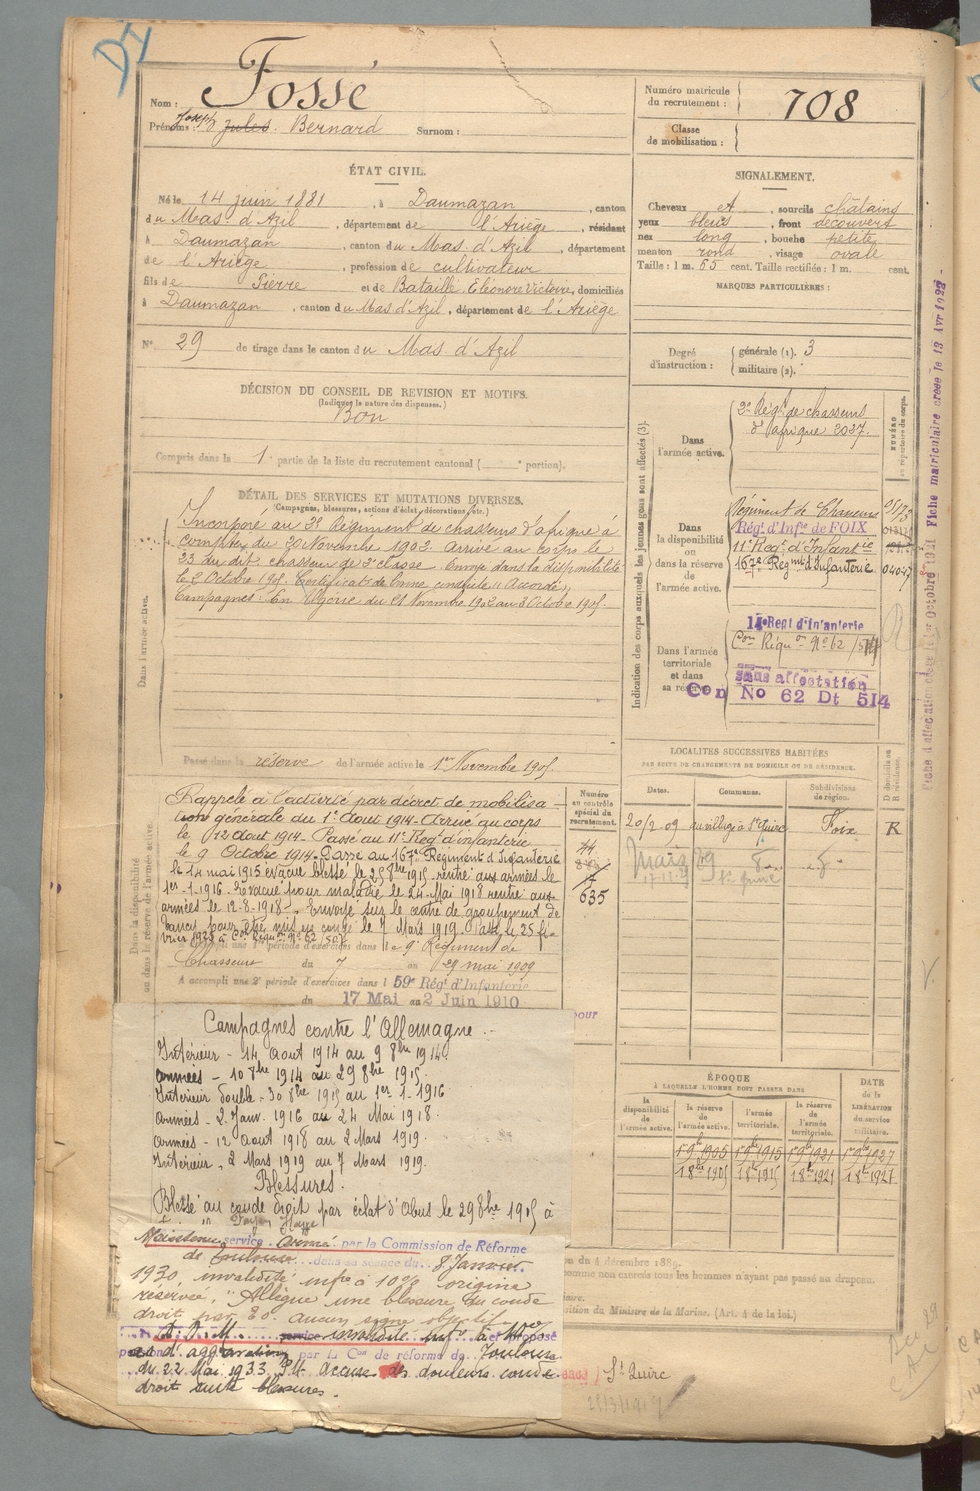 Nom : Fossé
Prénoms : Joseph Jules Bernard Surnom :
Numéro matricule
du recrutement : 708
Classe
de mobilisation :
ÉTAT CIVIL.
Né le 14 juin 1881, à Daumazan, canton
du Mas-d'Azil, département de l'Ariège, résidant
à Daumazan, canton du Mas-d'Azil, département
de l'Ariège, profession de cultivateur
fils de Pierre et de Bataillé Eléonore Victoire, domiciliés
à Daumazan, canton du Mas-d'Azil, département de l'Ariège
N° 29 de tirage dans le canton du Mas d'Azil
SIGNALEMENT.
Cheveux et, sourcils châtains
yeux bleus, front découvert
nez long, bouche petite
menton rond, visage ovale
Taille : 1 m. 65 cent. Taille rectifiée : 1 m. cent.
MARQUES PARTICULIÈRES :
Degré
d'instruction :
générale (1). 3
militaire (2).
DÉCISION DU CONSEIL DE REVISION ET MOTIFS.
(Indiquer la nature des dispenses.)
Bon
Compris dans la 1e partie de la liste du recrutement cantonal ( e portion).
DÉTAIL DES SERVICES ET MUTATIONS DIVERSES.
(Campagnes, blessures, actions d'éclat, décorations, etc.)
Dans l'armée active.
Incorporé au 2e Régiment de chasseurs d'afrique à
compter du 20 Novembre 1902. arrivé au corps le
23 du dit. chasseur de 2e classe. Envoyé dans la disponibilité
le 2 Octobre 1905. Certificat de bonne conduite "Accordé"
Campagnes : En Algérie du 21 Novembre 1902 au 3 Octobre 1905.
Passé dans la réserve de l'armée active le 1er Novembre 1905.
Indication des corps auxquels les jeunes gens sont affectés (3).
NUMÉRO
au répertoire du corps.
Dans
l'armée active.
2e Régt de chasseurs
d'afrique 2037.
Dans
la disponibilité
ou
dans la réserve
de
l'armée active.
Régiment de Chasseurs
Régt d'Infie de FOIX
11e Regt d'Infantie
167e Regmt d'Infanterie 04047
Dans l'armée
territoriale
et dans
sa réserve.
14e Regt d'infanterie
Con Réquon No 62 / 514
sans affectation
Con No 62 Dt 514
Fiche matriculaire créée le 13 Avr 1922
Fiche d'affectation créée le 1er Octobre 1921
Dans la disponibilité
ou dans la réserve de l'armée active
Rappelé à l'activité par décret de mobilisa
tion générale du 1er Aout 1914. Arrivé au corps
le 12 Aout 1914. Passé au 11e Regt d'infanterie
le 9 Octobre 1914. Passé au 167e Régiment d'Infanterie
le 14 mai 1915 évacué blessé le 29 8bre 1915 rentré aux armées le
1er-1-1916. Evacué pour maladie le 24 Mai 1918 rentré aux
armées le 12-8-1918. Envoyé sur le centre de groupement de
pour être mis en congé le 7 Mars 1919. Passé le 25 fé-
vrier 1928 à Con Réquon No 62 /507.
A accompli une 1re période d'exercices dans le 9e Régiment de
Chasseurs du 7 au 29 mai 1909
A accompli une 2e période d'exercices dans l 59e Régt d'Infanterie
du 17 Mai au 2 Juin 1910
Numéro
au contrôle
spécial du
recrutement.
635
LOCALITÉS SUCCESSIVES HABITÉES
PAR SUITE DE CHANGEMENTS DE DOMICILE OU DE RÉSIDENCE.
Dates. Communes. Subdivisions
de région.
D domicile ou
R résidence.
20/2.09 au village à St Quirc Foix R
Mars 29
17-11-29 St Quirc
Campagnes contre l'Allemagne.
Intérieur - 14 Aout 1914 au 9 8bre 1914
Armées - 10 8bre 1914 au 29 8bre 1915.
Intérieur double - 30 8bre 1915 au 1er-1-1916
Armées - 2 Janv. 1916 au 24 Mai 1918.
Armées - 12 Aout 1918 au 2 Mars 1919.
Intérieur, 2 Mars 1919 au 7 Mars 1919.
Blessures.
Blessé au coude droit par éclat d'Obus le 29 8bre 1915 à
Maintenu service armé par la Commission de Réforme
de Toulouse dans sa séance du 8 Janvier
1930, invalidité infre à 10% origine
réservée, "Allègue une blessure du coude
droit par E.O. aucun signe objectif
service invalidité infre à 10% proposé
par la Con de réforme de Toulouse
du 22 Mai 1933. Pt Accuse des douleurs coude
droit suite blessures.
pour
ÉPOQUE
À LAQUELLE L'HOMME DOIT PASSER DANS
la
disponibilité
de
l'armée active.
la réserve
de
l'armée active.
l'armée
territoriale.
la réserve
de
l'armée
territoriale.
DATE
de la
LIBÉRATION
du service
militaire.
1 9bre 1905 1 9bre 1915 1 9bre 1921 1 9bre 1927
1 8bre 1905 1 8bre 1915 1 8bre 1921 1 8bre 1927
du 4 décembre 1889.
comme non exercés tous les hommes n'ayant pas passé au drapeau.
position du Ministre de la Marine. (Art. 4 de la loi.)
St Quirc